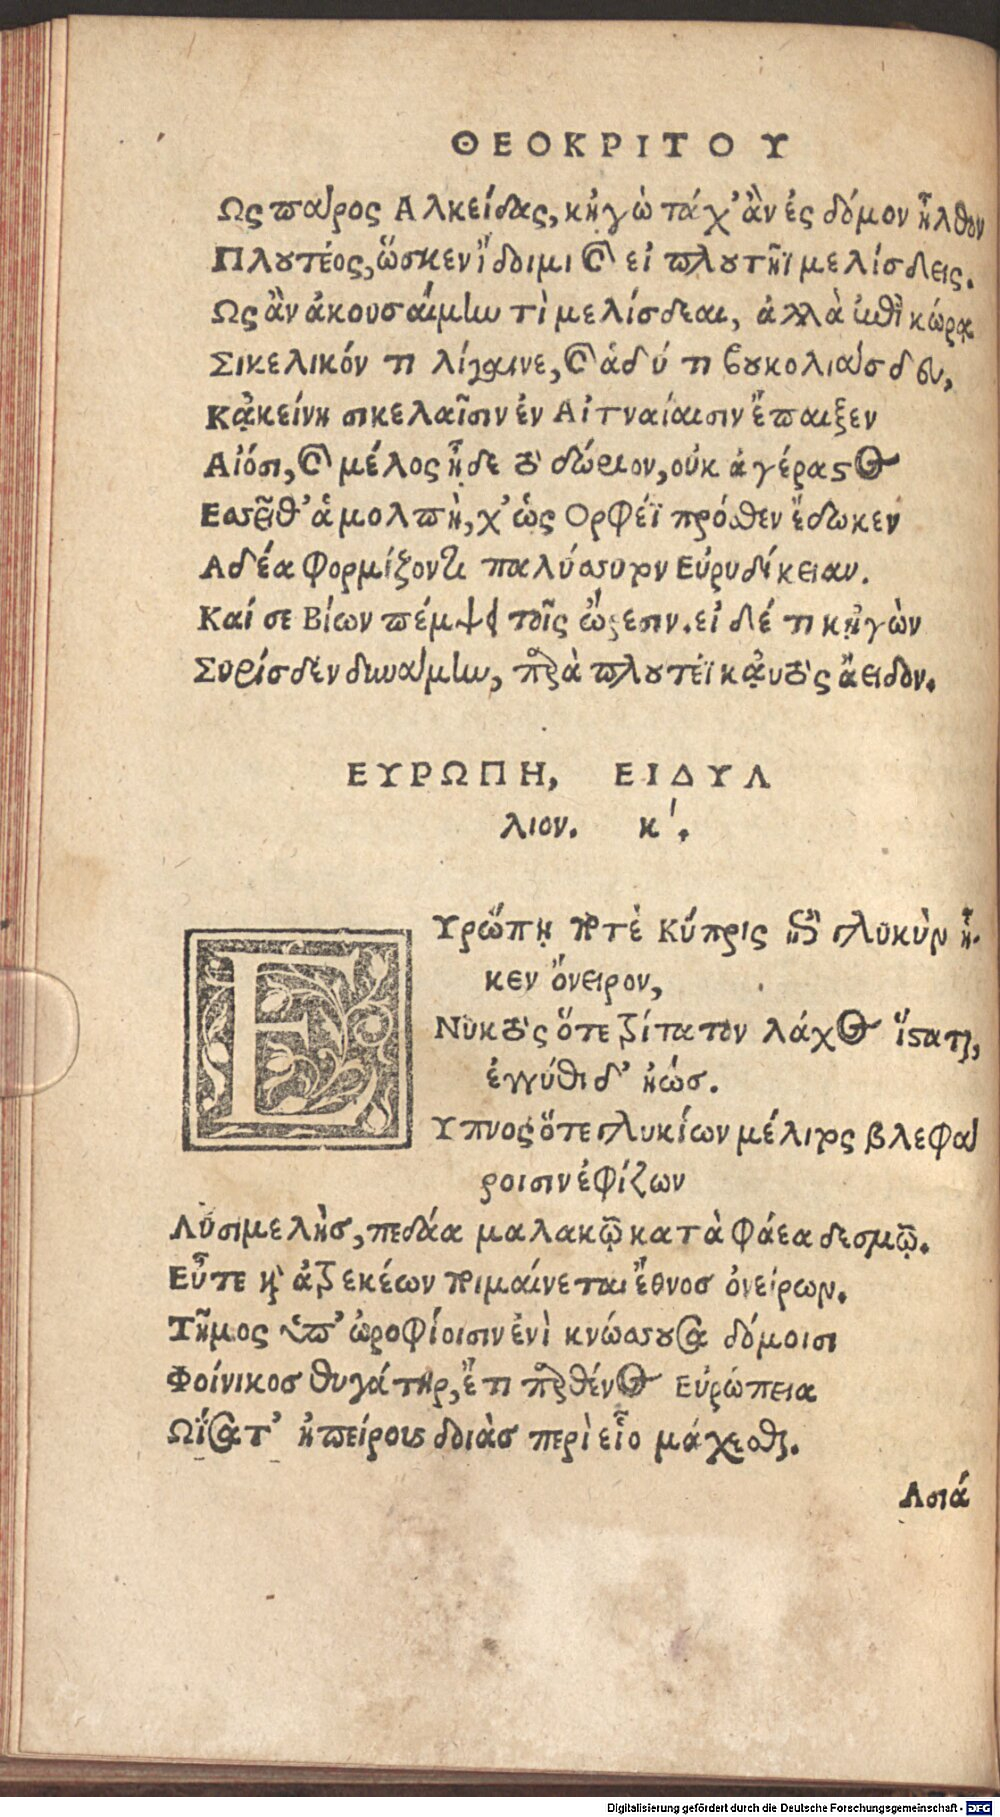 ΘΕΟΚΡΙΤΟΥ
Ως πάρος Αλκείδας, κἠγὼ τάχ' ἂν ἐς δόμον ἦλθον
Πλουτέος, ὥς κεν ἴδοιμι καὶ εἰ πλουτῆϊ μελίσδεις.
Ως ἂν ἀκουσαίμην τὶ μελίσδεαι, ἀλλὰ ἐπὶ κώρᾳ
Σικελικόν τι λίγαινε, καὶ ἁδύ τι βουκολιάσδευ,
Κᾀκείνη σικελαῖσιν ἐν Αἰτναίαισιν ἔπαιξεν
Αἰόσι, καὶ μέλος ᾖδε τὸ δώριον, οὐκ ἀγέραστος
Εασεῖθ' ἁ μολπὴ, χ' ὡς Ορφέϊ πρόσθεν ἔδωκεν
Αδέα φορμίζοντι παλύασυρν Εὐρυδίκειαν.
Καί σε Βίων πέμψει τοῖς ὤρεσιν. εἰ δέ τι κᾐγὼν
Συρίσδεν δυναίμην, παρὰ πλουτέϊ κᾀυτὸς ἄειδον.
ΕΥΡΩΠΗ, ΕΙΔΥΛ
λιον. κ'.
ΕΥρώπῃ ποτὲ Κύπρις ἐπὶ γλυκὺν ἧ-
κεν ὄνειρον,
Νυκτὸς ὅτε τρίτατον λάχος ἵσταται,
ἐγγύθι δ' ἠώσ.
Υπνος ὅτε γλυκίων μέλιτος βλεφά
ροισιν ἐφίζων
Λυσιμελὴσ, πεδάα μαλακῷ κατὰ φάεα δεσμῷ.
Εὖτε καὶ ἀτρεκέων ποιμαίνεται ἔθνοσ ὀνείρων.
Τῆμος ὑπ' ὠροφίοισιν ἐνὶ κνώασουσα δόμοισι
Φοίνικοσ θυγάτηρ, ἔτι παρθένος Εὐρώπεια
Ωΐσατ' ἠπείρους δοιὰσ περὶ εἷο μάχεσθαι.
Ασιά
Digitalisierung gefördert durch die Deutsche Forschungsgemeinschaft - DFG